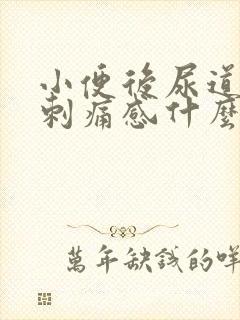 小便後尿道
刺痛感什麼
萬年缺錢的咩